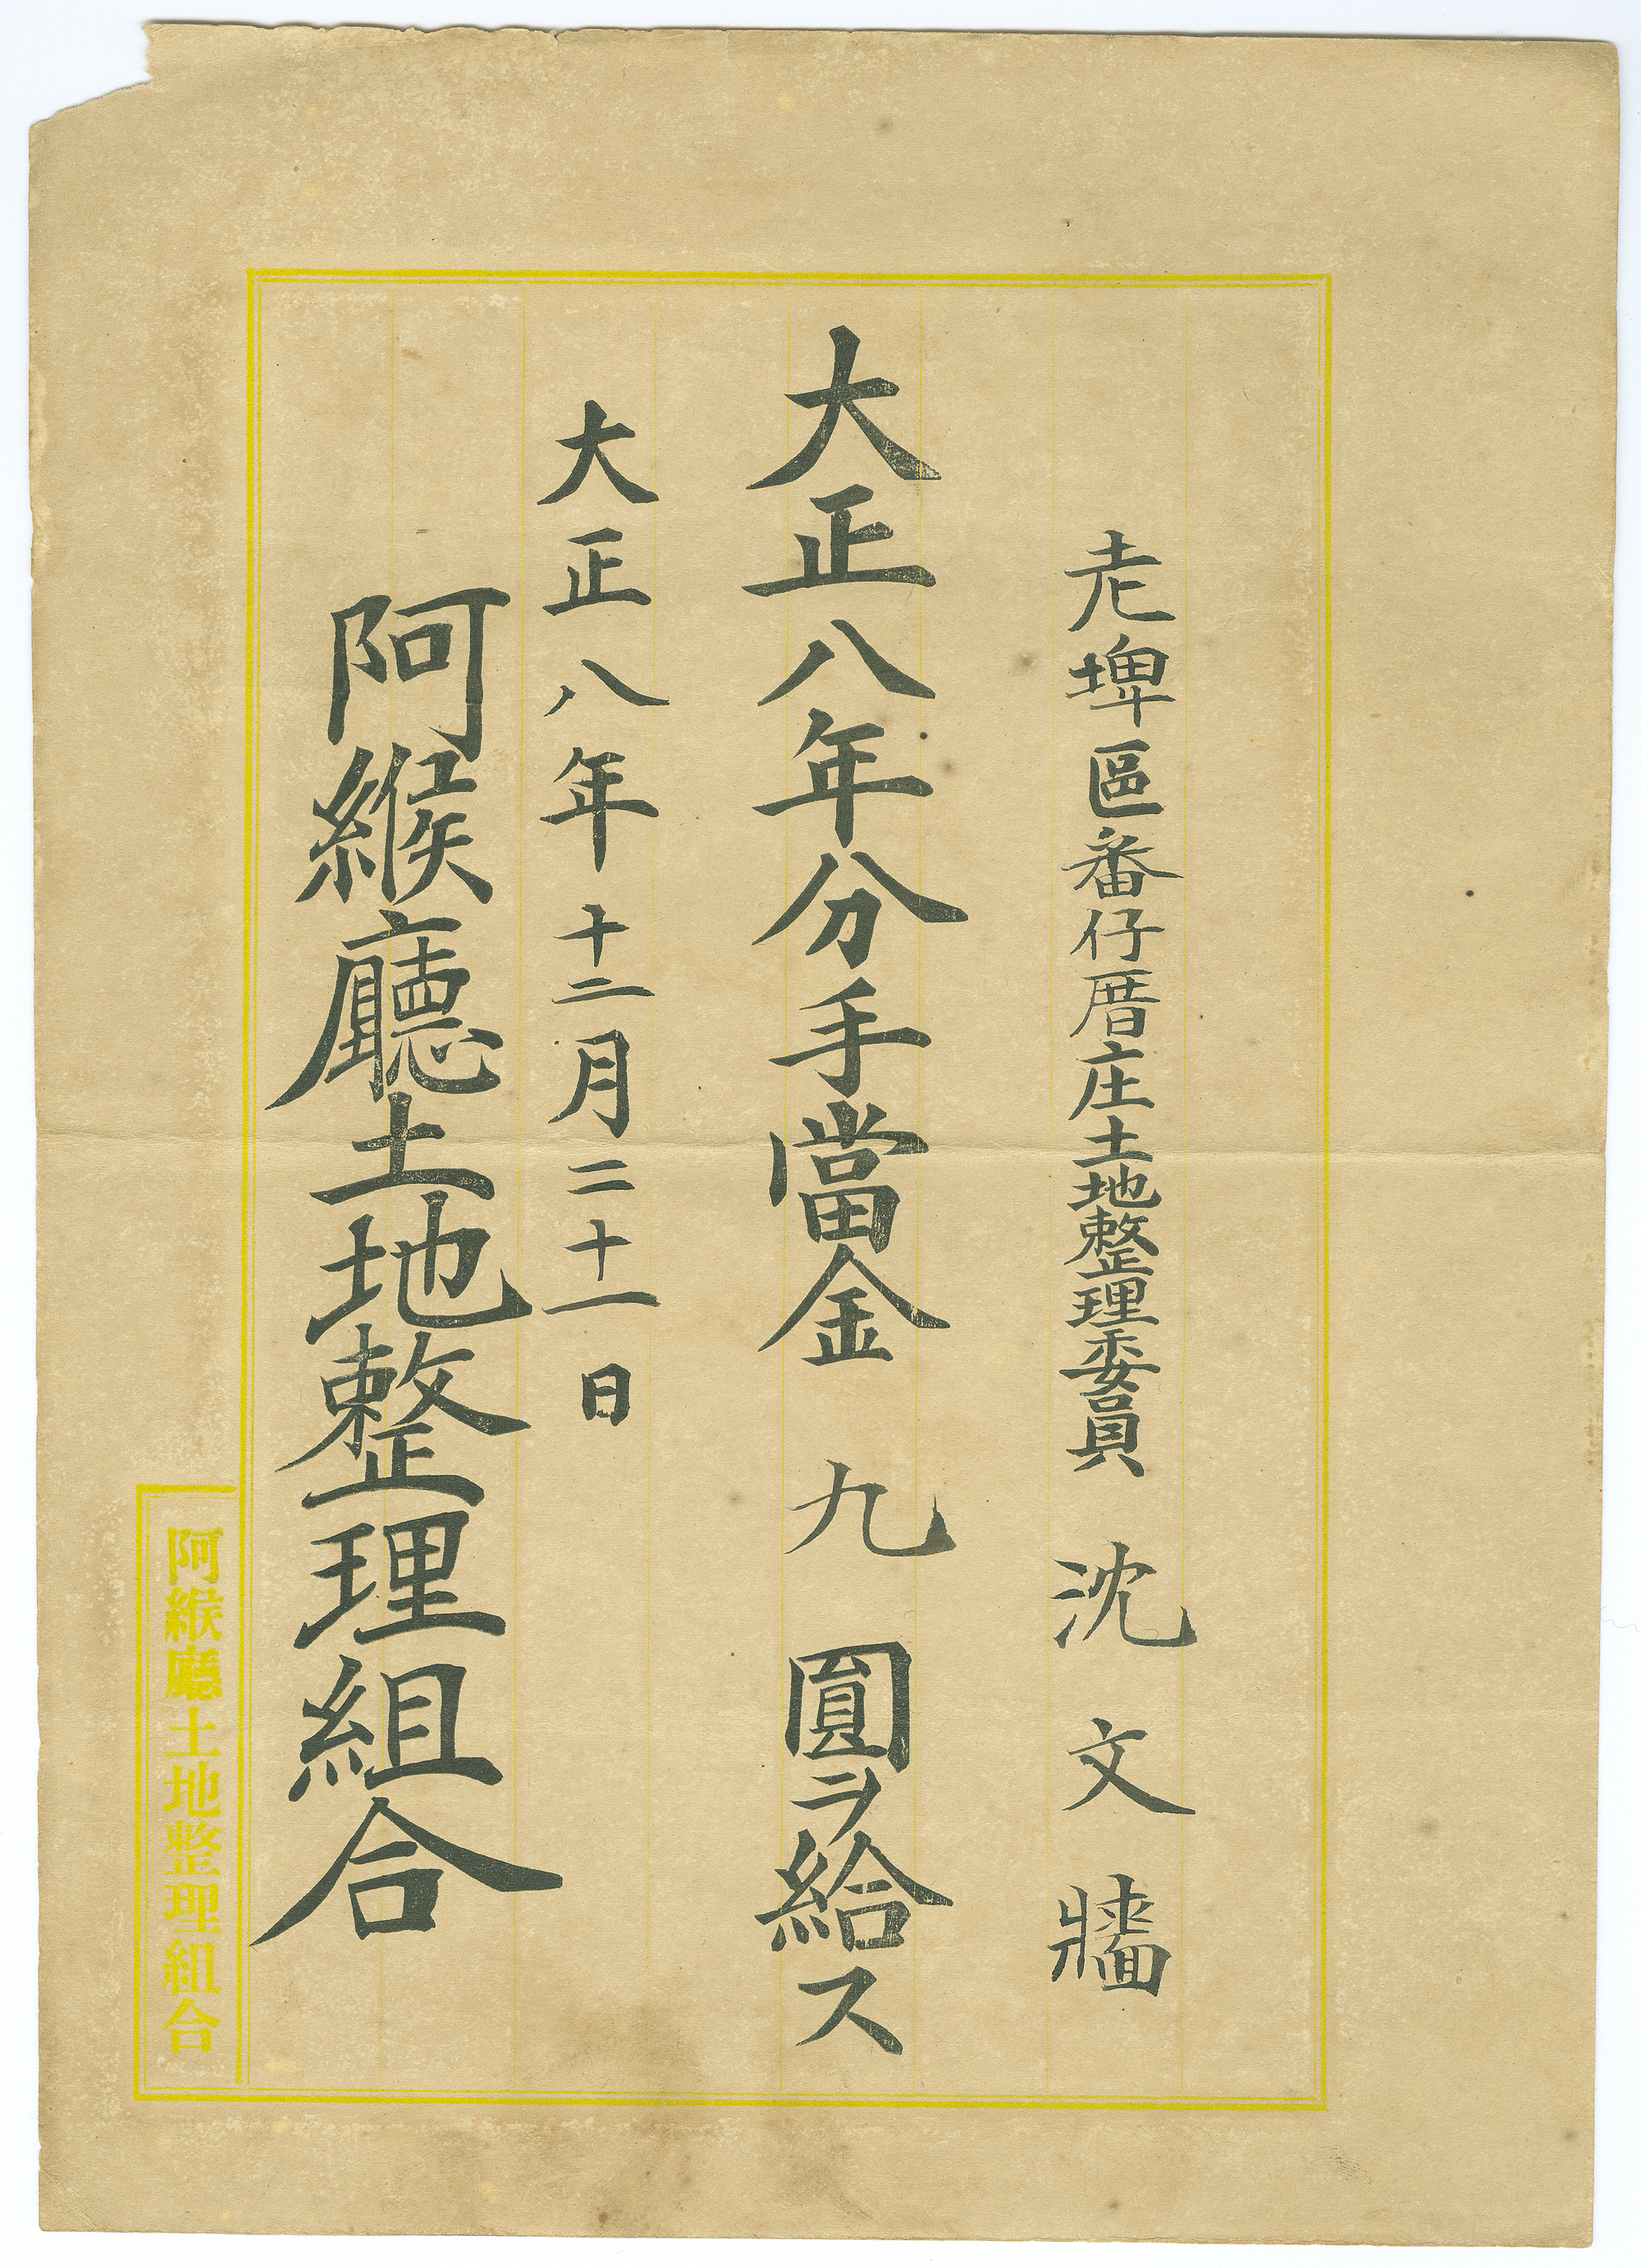 老埤區番仔厝庄土地整理委員 沈文牆
大正八年分手當金九圓ヲ給ス
大正八年十二月二十一日
阿緱廳土地整理組合
阿緱廳土地整理組合